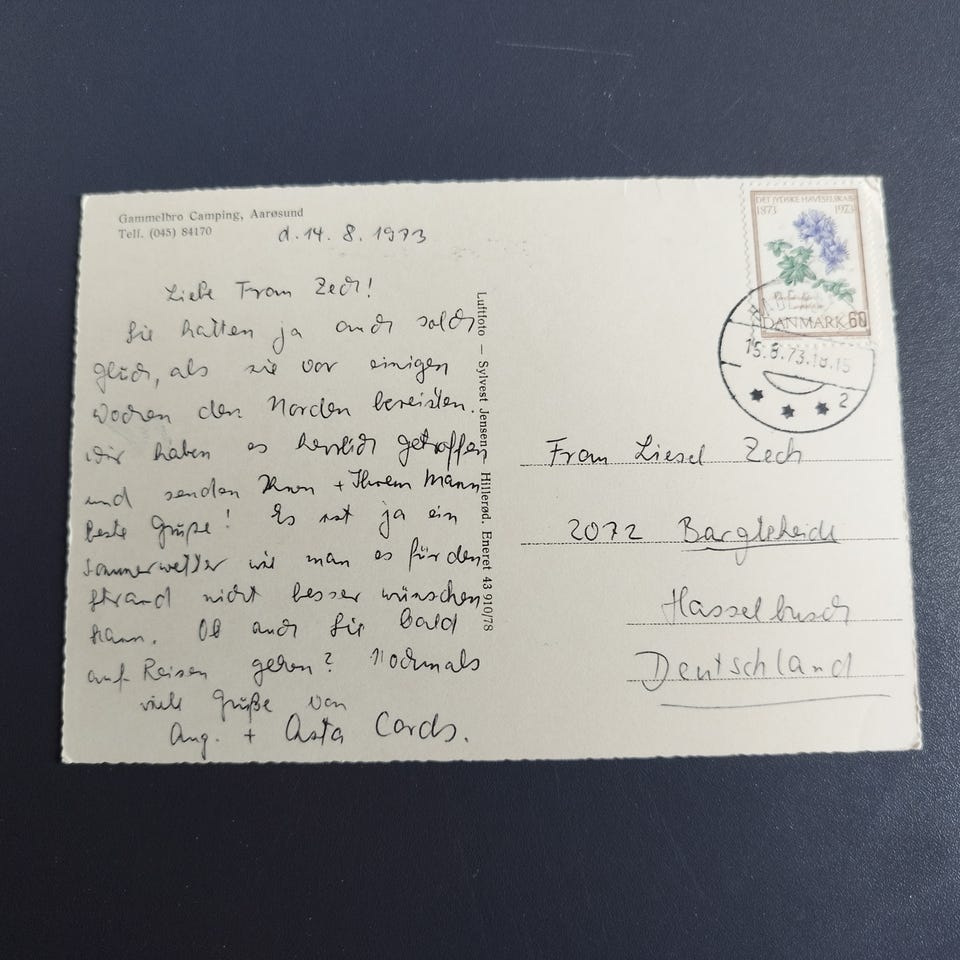 Gammelbro Camping, Aarøsund
Telf. (045) 84170
d. 14. 8. 1973
Liebe Frau Zech!
Sie hatten ja auch solch
Glück, als sie vor einigen
Wochen den Norden bereisten.
Wir haben es herrlich getroffen
und senden Ihnen + Ihrem Mann
beste Grüße! Es ist ja ein
Sommerwetter wie man es für den
Strand nicht besser wünschen
kann. Ob auch Sie bald
auf Reisen gehen? Nochmals
viele Grüße von
Aug. + Asta Cords.
Luftfoto — Sylvest Jensen — Hillerød. Eneret 43 910/78
DET JYDSKE HAVESELSKAB
1873 1973
DANMARK 60
15.8.73.18.15
2
Frau Liesel Zech
2072 Bargteheide
Hasselbusch
Deutschland